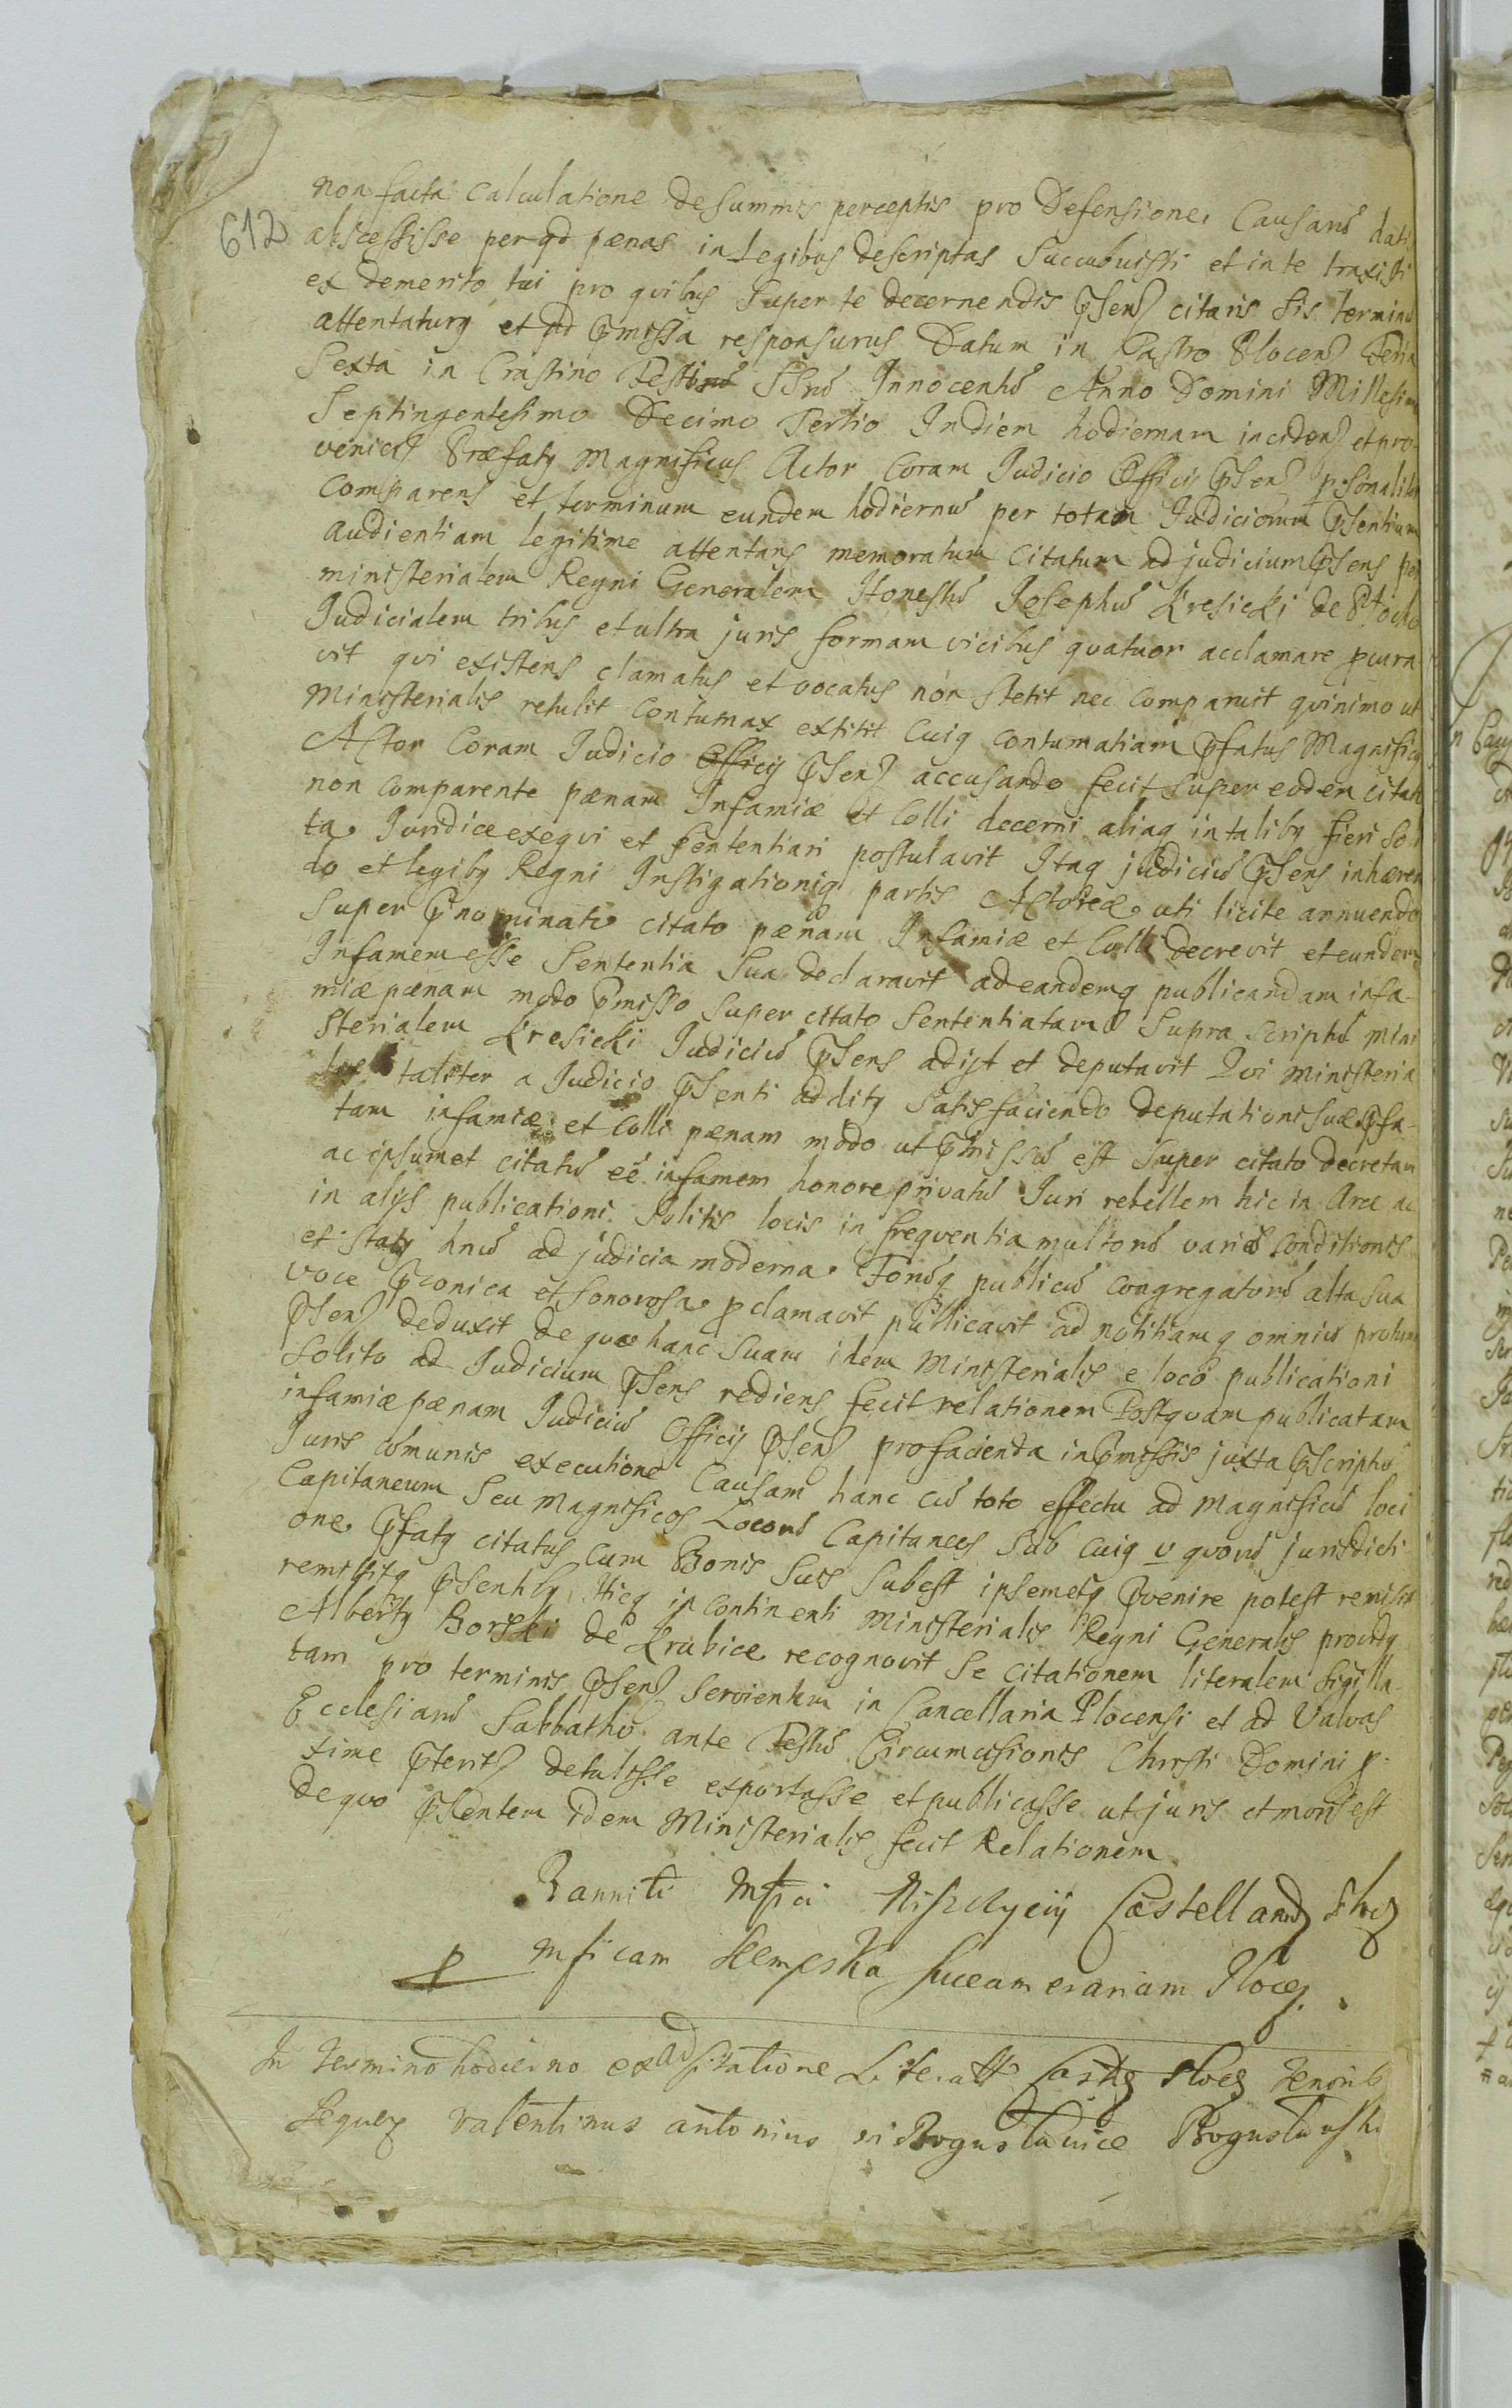 612
non facta calculatione de summis perceptis pro Defensione Causarũ dati
abscessisse per qd pænas in Legibus descriptas Succubuisti et in te traxisti
ex demerito tui pro quibus super te decernendis pñsens citaris sis terminũ
attentaturq et ad pmissa responsurus Datum in Castro Plocens Feria
Sexta in Crastino Festi SSrũ Innocentũ Anno Domini Millesimo
Septingentesimo Decimo Tertio In diem hodiernam incidens et pro-
veniens Præfatq Magnificus Actor Coram Judicio Officii pñsens psonaliter
Comparens et terminum eundem hodiernũ per totam Judiciorum pñsentium
audientiam legitime attentans memoratum Citatum ad judicium pñsens per
ministerialem Regni Generalem Honestũ Josephũ Kresicki de Plocko
Judicialem tribus et ultra juris formam vicibus quatuor acclamare pcura
vit qui existens clamatus et vocatus non stetit nec comparuit quinimo ut
Ministerialis retulit Contumax extitit Cuiq contumatiam pfatus Magnificq
Actor Coram Judicio Officij pñsens accusando fecit super eodem citato
non comparente pænam Infamiæ et Colli decerni aliaq in talibq fieri soli
ta Juridice exequi et sententiari postulavit Itaq judiciũ pñsens inhæren
do et legibq Regni Instigationiq partis Actoreæ uti licite annuendo
super pnominato citato pænam Infamiæ et Colli decrevit et eundem
Infamem esse Sententia Sua declaravit ad eandemq publicandam infa-
miæ pænam modo pmisso super citato sententiatam supra scriptũ Mini
sterialem Kresicki Judiciũ pñsens adijt et deputavit Qui ministeria
lis taliter a Judicio pñsenti additq satisfaciendo deputationi suæ pfa-
tam infamiæ et Colli pænam modo ut pmissũ est super citato decretam
ac ipsummet citatũ eẽ infamem honore privatũ Juri rebellem hic in Arce ac
in alijs publicationi solitis locis in frequentia multorũ variæ conditionis
et statq hnũ ad judicia moderna Forũq publicũ congregatorũ alta sua
voce pconica et sonorosa pclamavit publicavit ad notitiamq omniũ protunc
pñsens deduxit de quo hanc suam idem Ministerialis e loco publicationi
Solito ad Judicium pñsens rediens fecit relationem Postquam publicatam
infamiæ pænam Judiciũ Officij pñsens pro facienda in pmissis juxta pscriptũ
Juris comunis executione Causam hanc cũ toto effectu ad Magnificũ loci
Capitaneum seu Magnificos Locorũ Capitaneos sub cuiq v quorũ jurisdicti
one pfatq citatus cum Bonis suis subest ipsemetq pvenire potest remisit
remittitq pñsentibq Hicq in continenti Ministerialis Regni Generalis providq
Albertq Borski de Krubice recognovit se citationem literalem sigilla-
tam pro terminis pñsens servientem in Cancellaria Plocensi et ad Valvas
Ecclesiarũ Sabbatho ante Festũ Circumcisionis Christi Domini p-
xime pterits detulisse exportasse et publicasse ut juris et moris est
De quo pñsentem idem Ministerialis fecit Relationem
Banniti Mfici Castellani
p Mficam Kempska Succamerariam Plocen.
In termino hodierno ex ad citatione Literali Castri Plocen tenoris
Sequen Valentinus Antonius in Bogusławice Bogusławski